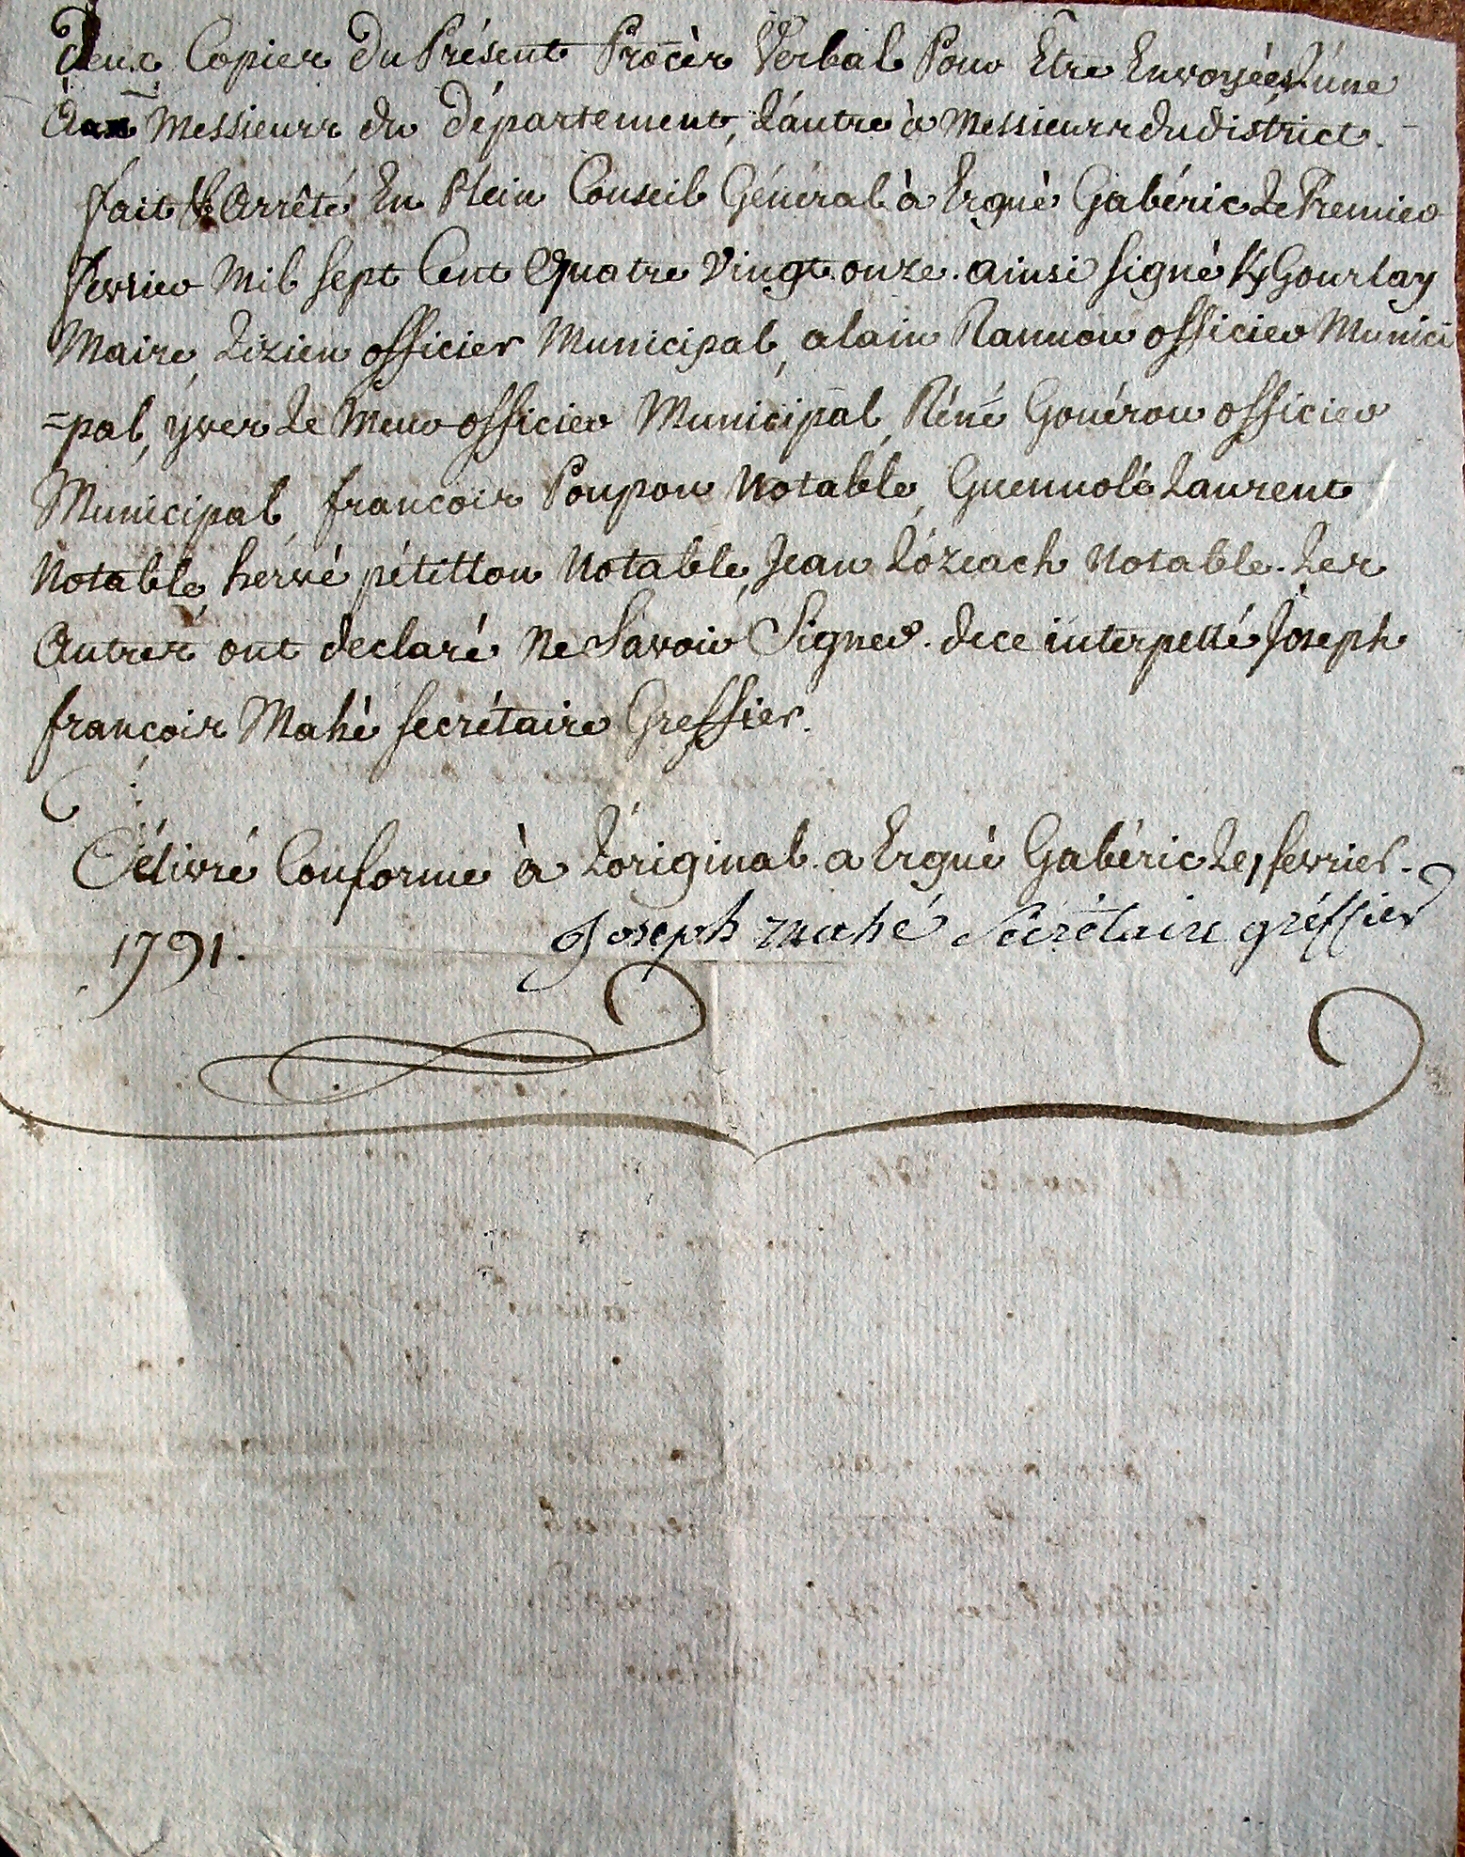 deux Copies du Présent Procès Verbal Pour Etre Envoyées L'une
à Messieurs du Département, L'autre à Messieurs du district.
fait & Arrêté En Plein Conseil Général à Ergué Gabéric Le Premier
fevrier Mil sept Cent Quatre Vingt onze. ainsi signé Ky Gourlay
Maire, Lizien officier Municipal, alain Rannou officier Munici
=pal, yves Le Meur officier Municipal, Réné Gouérou officier
Municipal, francois Poupon Notable, Guennolé Laurent
Notable, hervé pétillon Notable, Jean Lozeach Notable. Les
Autres ont declaré Ne Savoir Signer. de ce interpellé Joseph
françois Mahé secrétaire Greffier.
Délivré Conforme à L'original a Ergué Gabéric Le 1 fevrier.
1791. Joseph mahé Sécrétaire gréffier